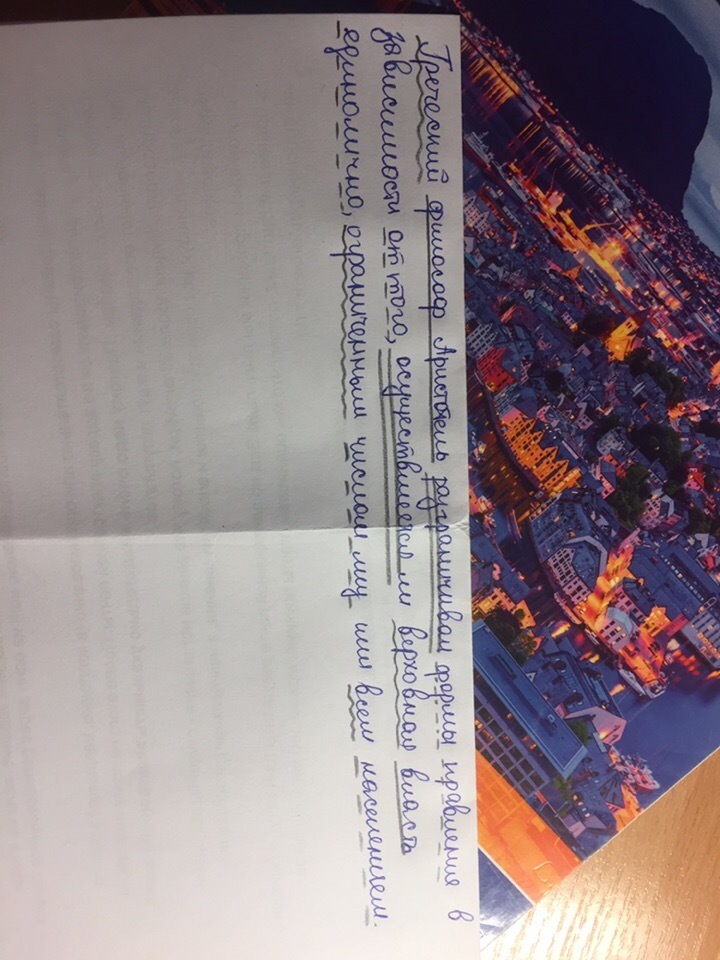 Греческий философ Аристотель разграничивал формы правления в
зависимости от того, осуществляется ли верховная власть
единолично, ограниченным числом лиц или всем населением.